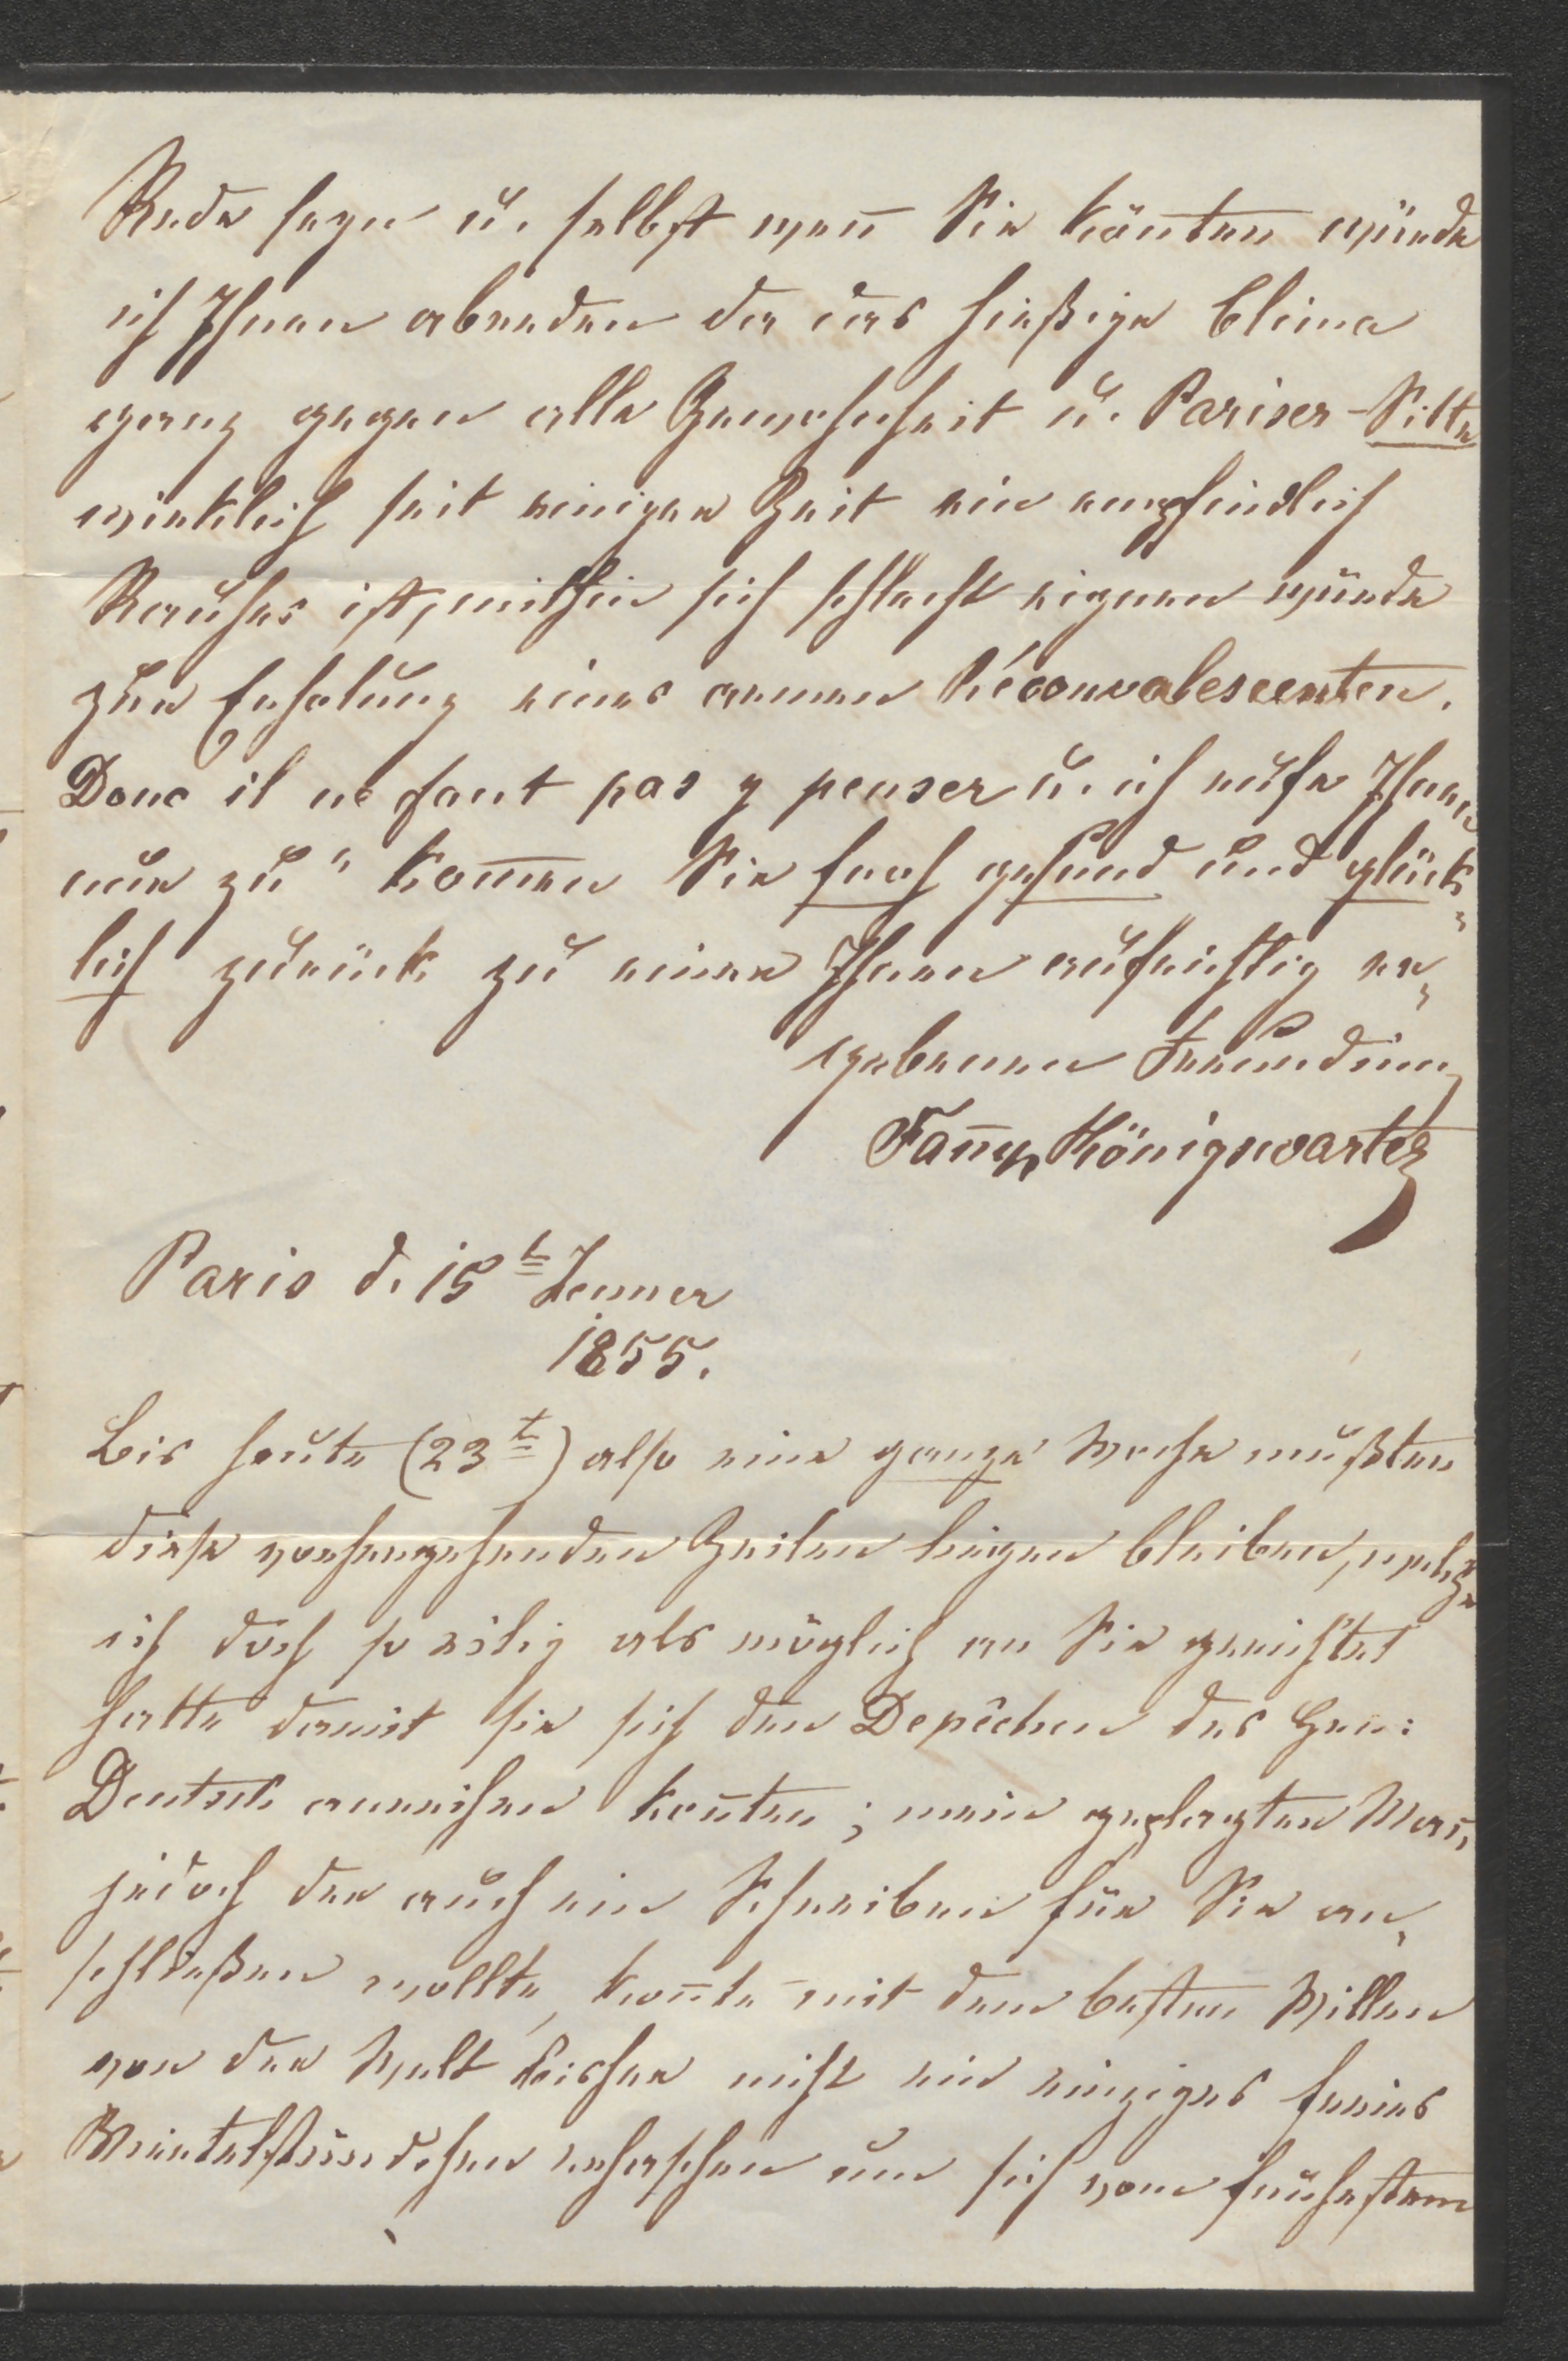 Rede seyn u. selbst wen̄ Sie kön̄ten würde
ich Ihnen abreden da das hießige Clima
ganz gegen alle Gewohnheit u. Pariser-Sitte
wirklich seit einiger Zeit ein empfindlich
Rauhes ist, mithin sich schlecht eignen würde
zur Erholung eines armen Réconvalescenten.
Donc il ne faut pas y penser u. ich rufe Ihnen
nur zu " kom̄en Sie froh gesund und glück-
lich zurück zu einer Ihnen aufrichtig er-
gebenen Freundinn
Fan̄y Königswarter
Paris d. 15t Jenner
1855.
Bis heute (23t) also eine ganze Woche mußten
diese vorhergehenden Zeilen liegen bleiben, welche
ich doch so eilig als möglich an Sie gerichtet
hatte damit sie sich den Depêchen des Hrn:
Deutsch anreihen kon̄ten; mein geplagter Man̄
jedoch der auch ein Schreiben für Sie an-
schließen wollte, kon̄te mit dem besten Willen
von der Welt bisher nicht ein einziges freies
Viertelstündchen erhaschen um sich vom frühesten